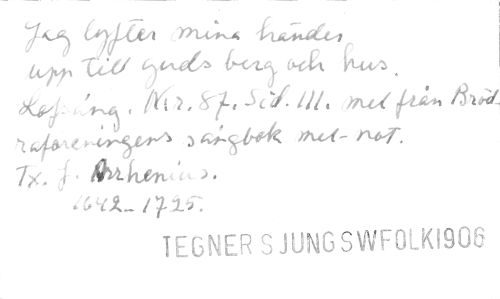 Jag lyfter mina händer
upp till guds berg och hus.
Lofsång. Nr. 87. Sid. 111. mel från Bröd-
raföreningens sångbok mel-not.
Tx. J. Arrhenius.
1642-1725.
TEGNER SJUNG SWFOLK1906